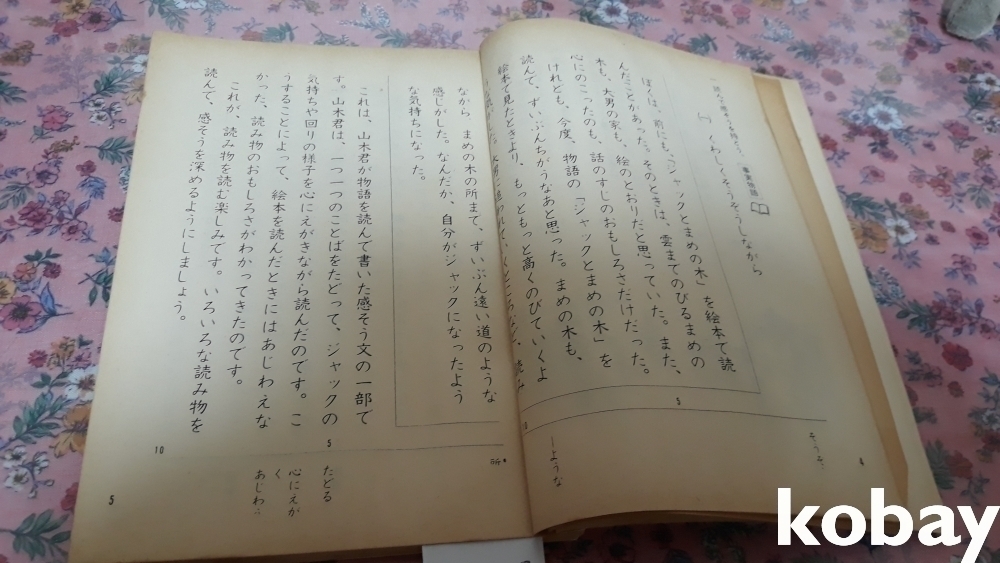 一 読んだ感そうを持とう 事実物語
(一) くわしくそうぞうしながら
ぼくは、前にも、「ジャックとまめの木」を絵本で読
んだことがあった。そのときは、雲までのびるまめの
木も、大男の家も、絵のとおりだと思っていた。また、
心にのこったのも、話のすじのおもしろさだけだった。
けれども、今度、物語の「ジャックとまめの木」を
読んで、ずいぶんちがうなあと思った。まめの木も、
絵本で見たときより、もっともっと高くのびていくよ
読み
5
10
そうぞ
ーような
4
ながら、まめの木の所まで、ずいぶん遠い道のような
感じがした。なんだか、自分がジャックになったよう
な気持ちになった。
これは、山木君が物語を読んで書いた感そう文の一部で
す。山木君は、一つ一つのことばをたどって、ジャックの
気持ちや回りの様子を心にえがきながら読んだのです。こ
うすることによって、絵本を読んだときにはあじわえな
かった、読み物のおもしろさがわかってきたのです。
これが、読み物を読む楽しみです。いろいろな読み物を
読んで、感そうを深めるようにしましょう。
5
10
所
たどる
心にえが
く
あじわう
5
kobay